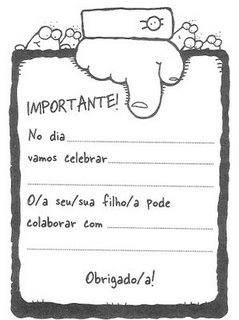 IMPORTANTE!
No dia
vamos celebrar
O/a seu/sua filho/a pode
colaborar com
Obrigado/a!